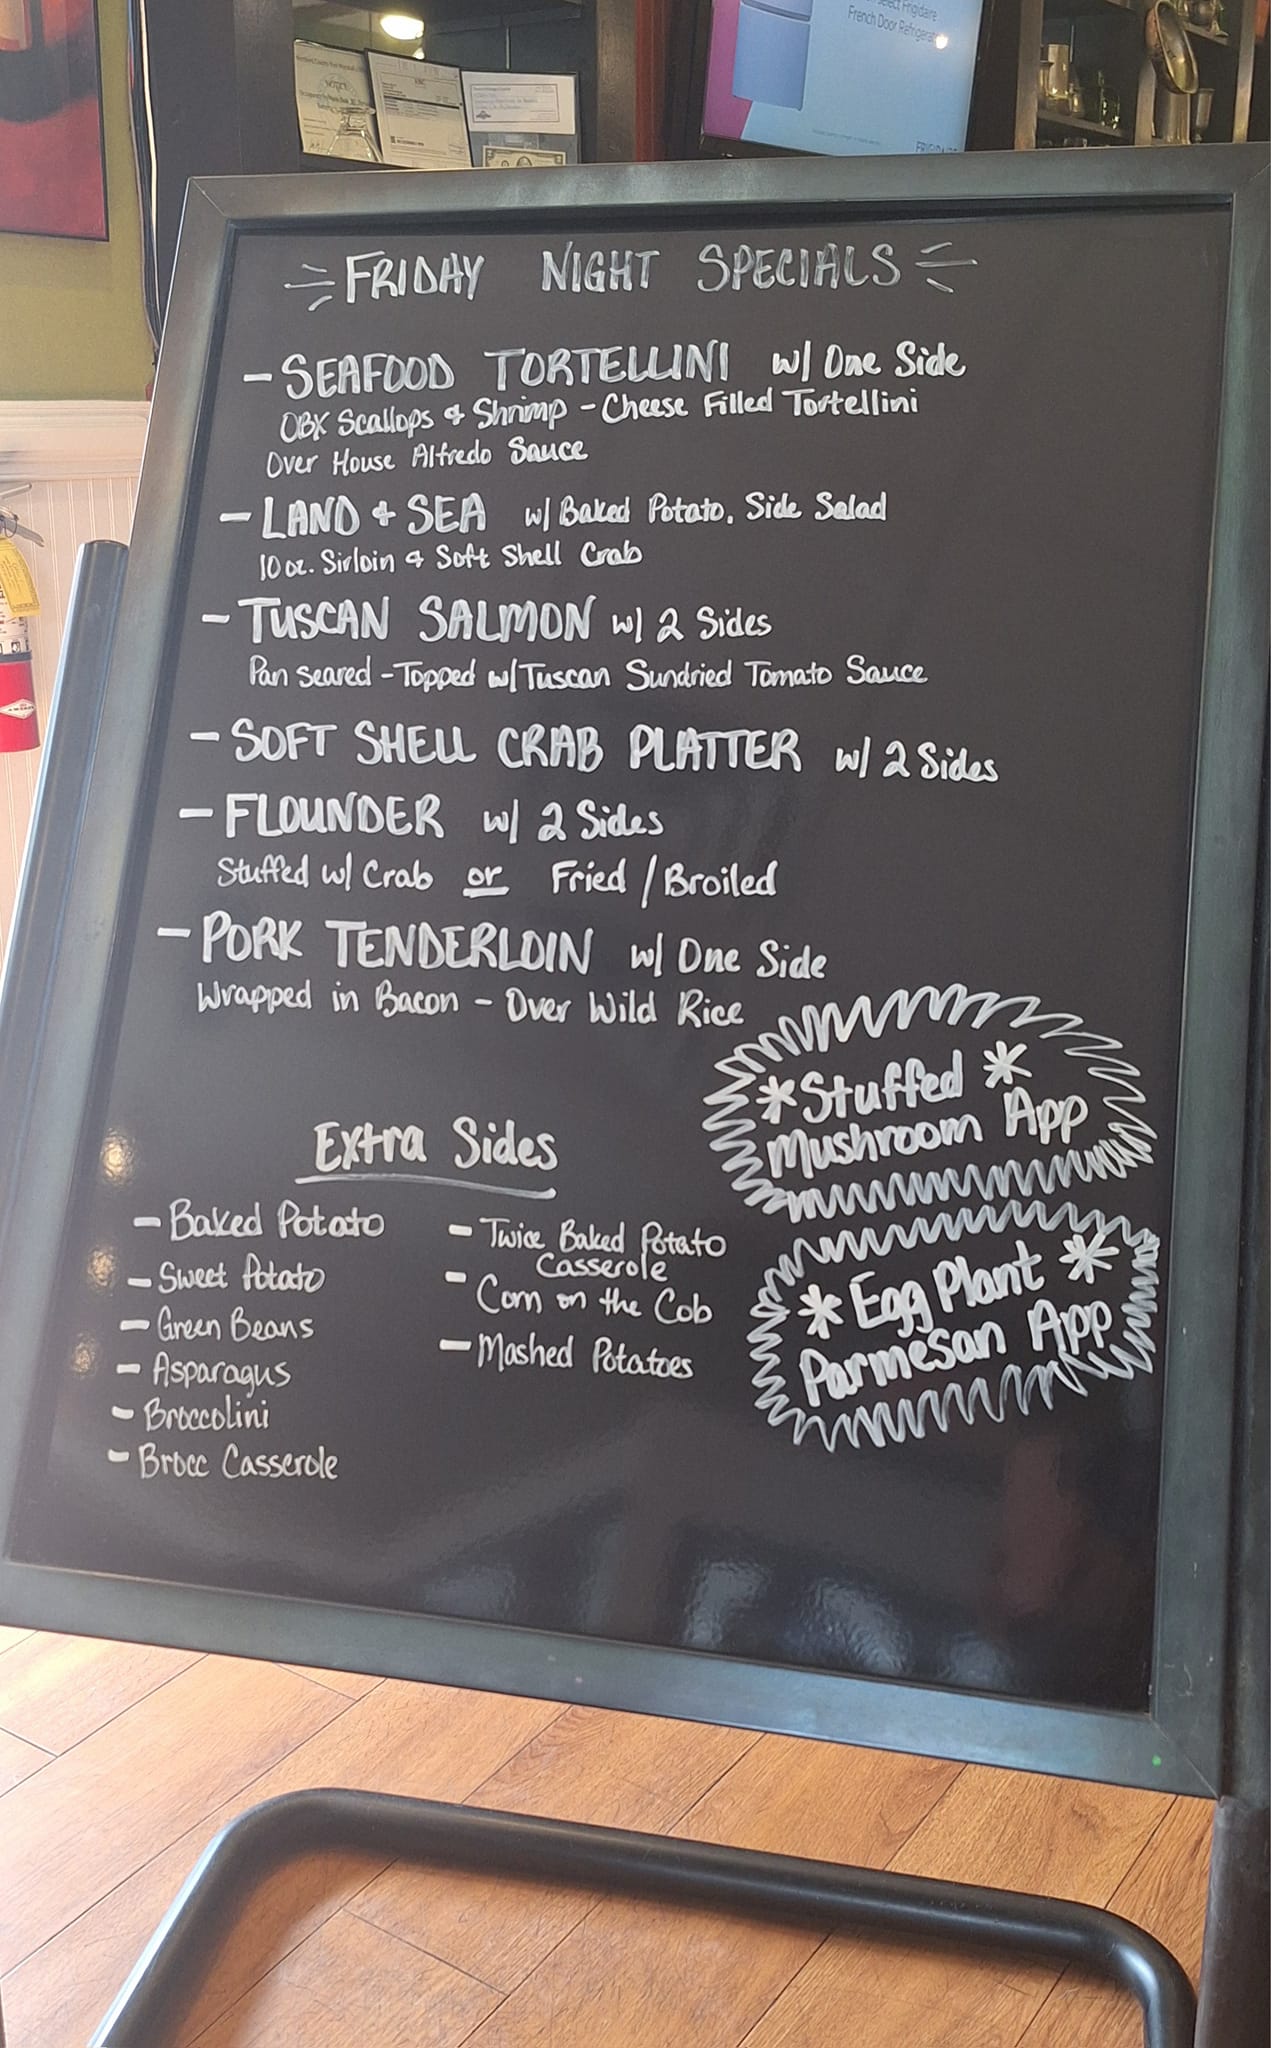 Select Frigidaire
French Door Refrigerator
NOTICE
FRIDAY NIGHT SPECIALS
- SEAFOOD TORTELLINI w/ One Side
OBX Scallops & Shrimp - Cheese Filled Tortellini
Over House Alfredo Sauce
- LAND + SEA w/ Baked Potato, Side Salad
10 oz. Sirloin & Soft Shell Crab
- TUSCAN SALMON w/ 2 Sides
Pan seared - Topped w/ Tuscan Sundried Tomato Sauce
- SOFT SHELL CRAB PLATTER w/ 2 Sides
- FLOUNDER w/ 2 Sides
Stuffed w/ Crab or Fried / Broiled
- PORK TENDERLOIN w/ One Side
Wrapped in Bacon - Over Wild Rice
*Stuffed *
Mushroom App
* Egg Plant *
Parmesan App
Extra Sides
- Baked Potato
- Sweet Potato
- Green Beans
- Asparagus
- Broccolini
- Brocc Casserole
- Twice Baked Potato
Casserole
- Corn on the Cob
- Mashed Potatoes